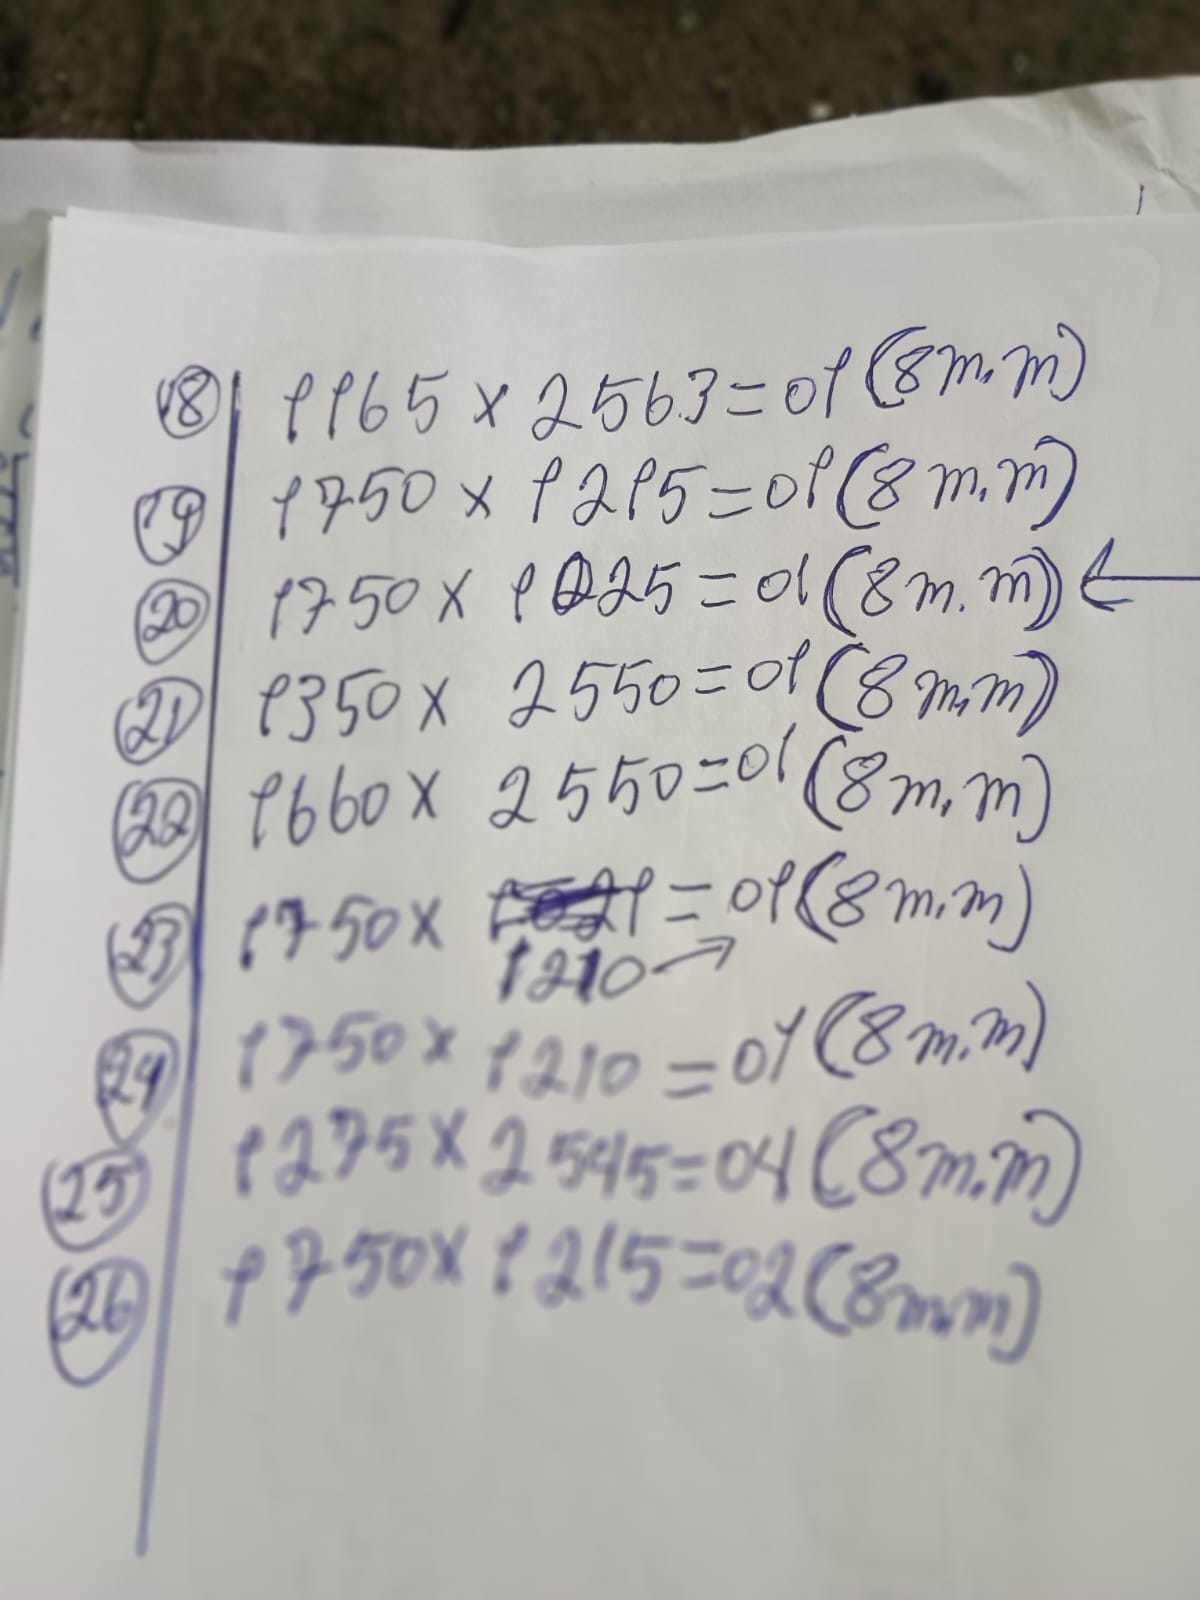 18 1165 x 2563 = 01 (8 m.m)
19 1750 x 1215 = 01 (8 m.m)
20 1750 x 1025 = 01 (8 m.m) ←
21 1350 x 2550 = 01 (8 m.m)
22 1660 x 2550 = 01 (8 m.m)
23 1750 x = 01 (8 m.m)
1210 →
24 1750 x 1210 = 01 (8 m.m)
25 1275 x 2545 = 04 (8 m.m)
26 1750 x 1215 = 02 (8 m.m)